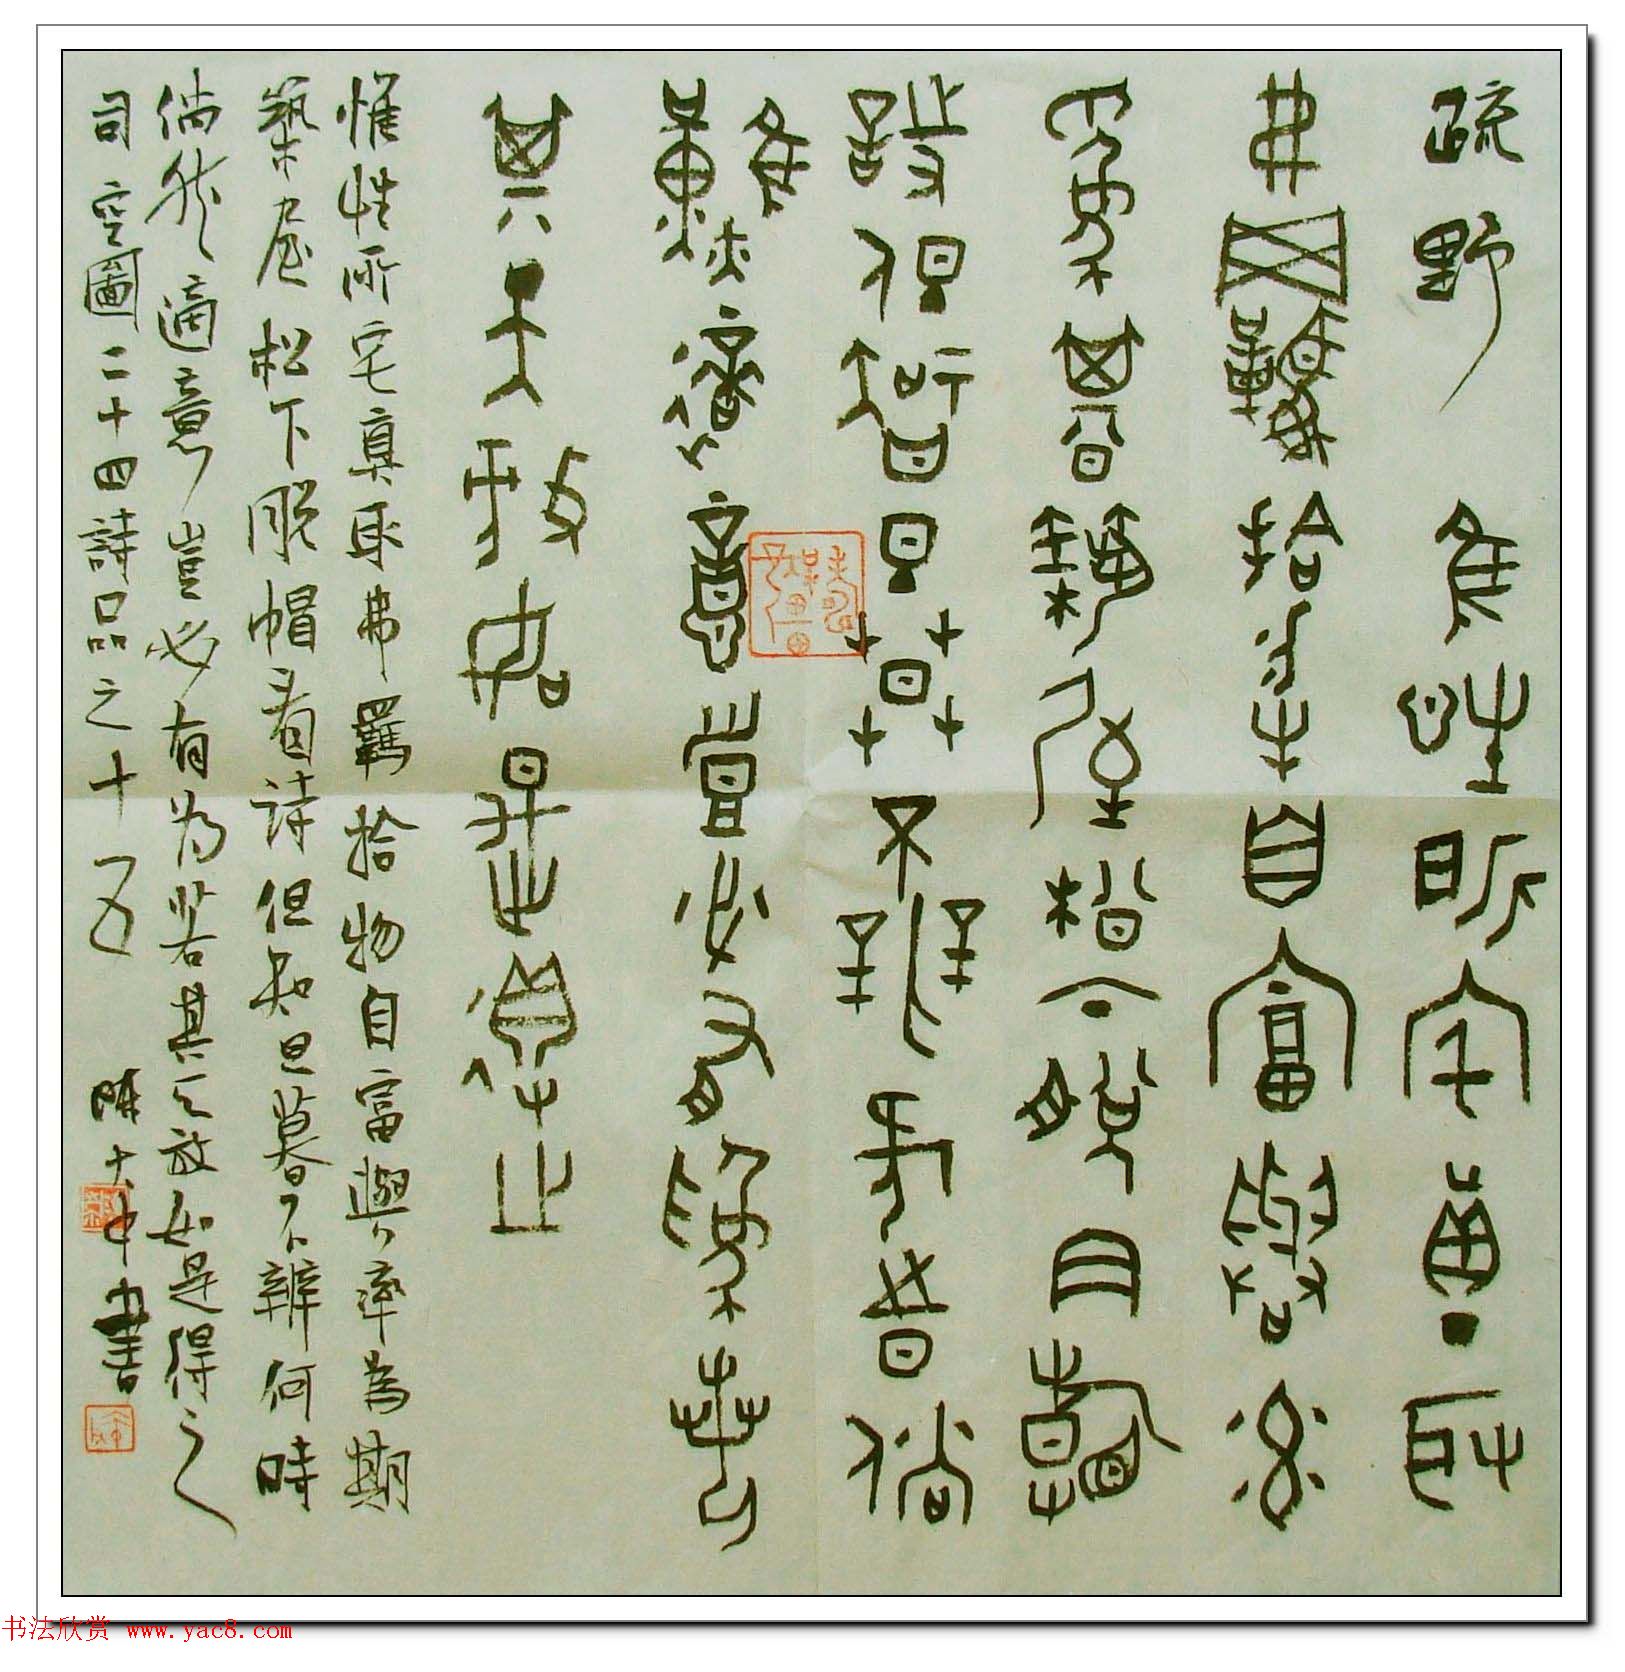 疏野 隹性所宅真取
弗羈拾物自富與率
為期築屋松下脫帽看
詩但知旦暮不辨何時倘
然適意豈必有為若
其天放如是得之
惟性所宅真取弗羈拾物自富與率為期
築屋松下脫帽看詩但知旦暮不辨何時
倘然適意豈必有为若其天放如是得之
司空圖二十四詩品之十五 陳大中書
书法欣赏 www.yac8.com